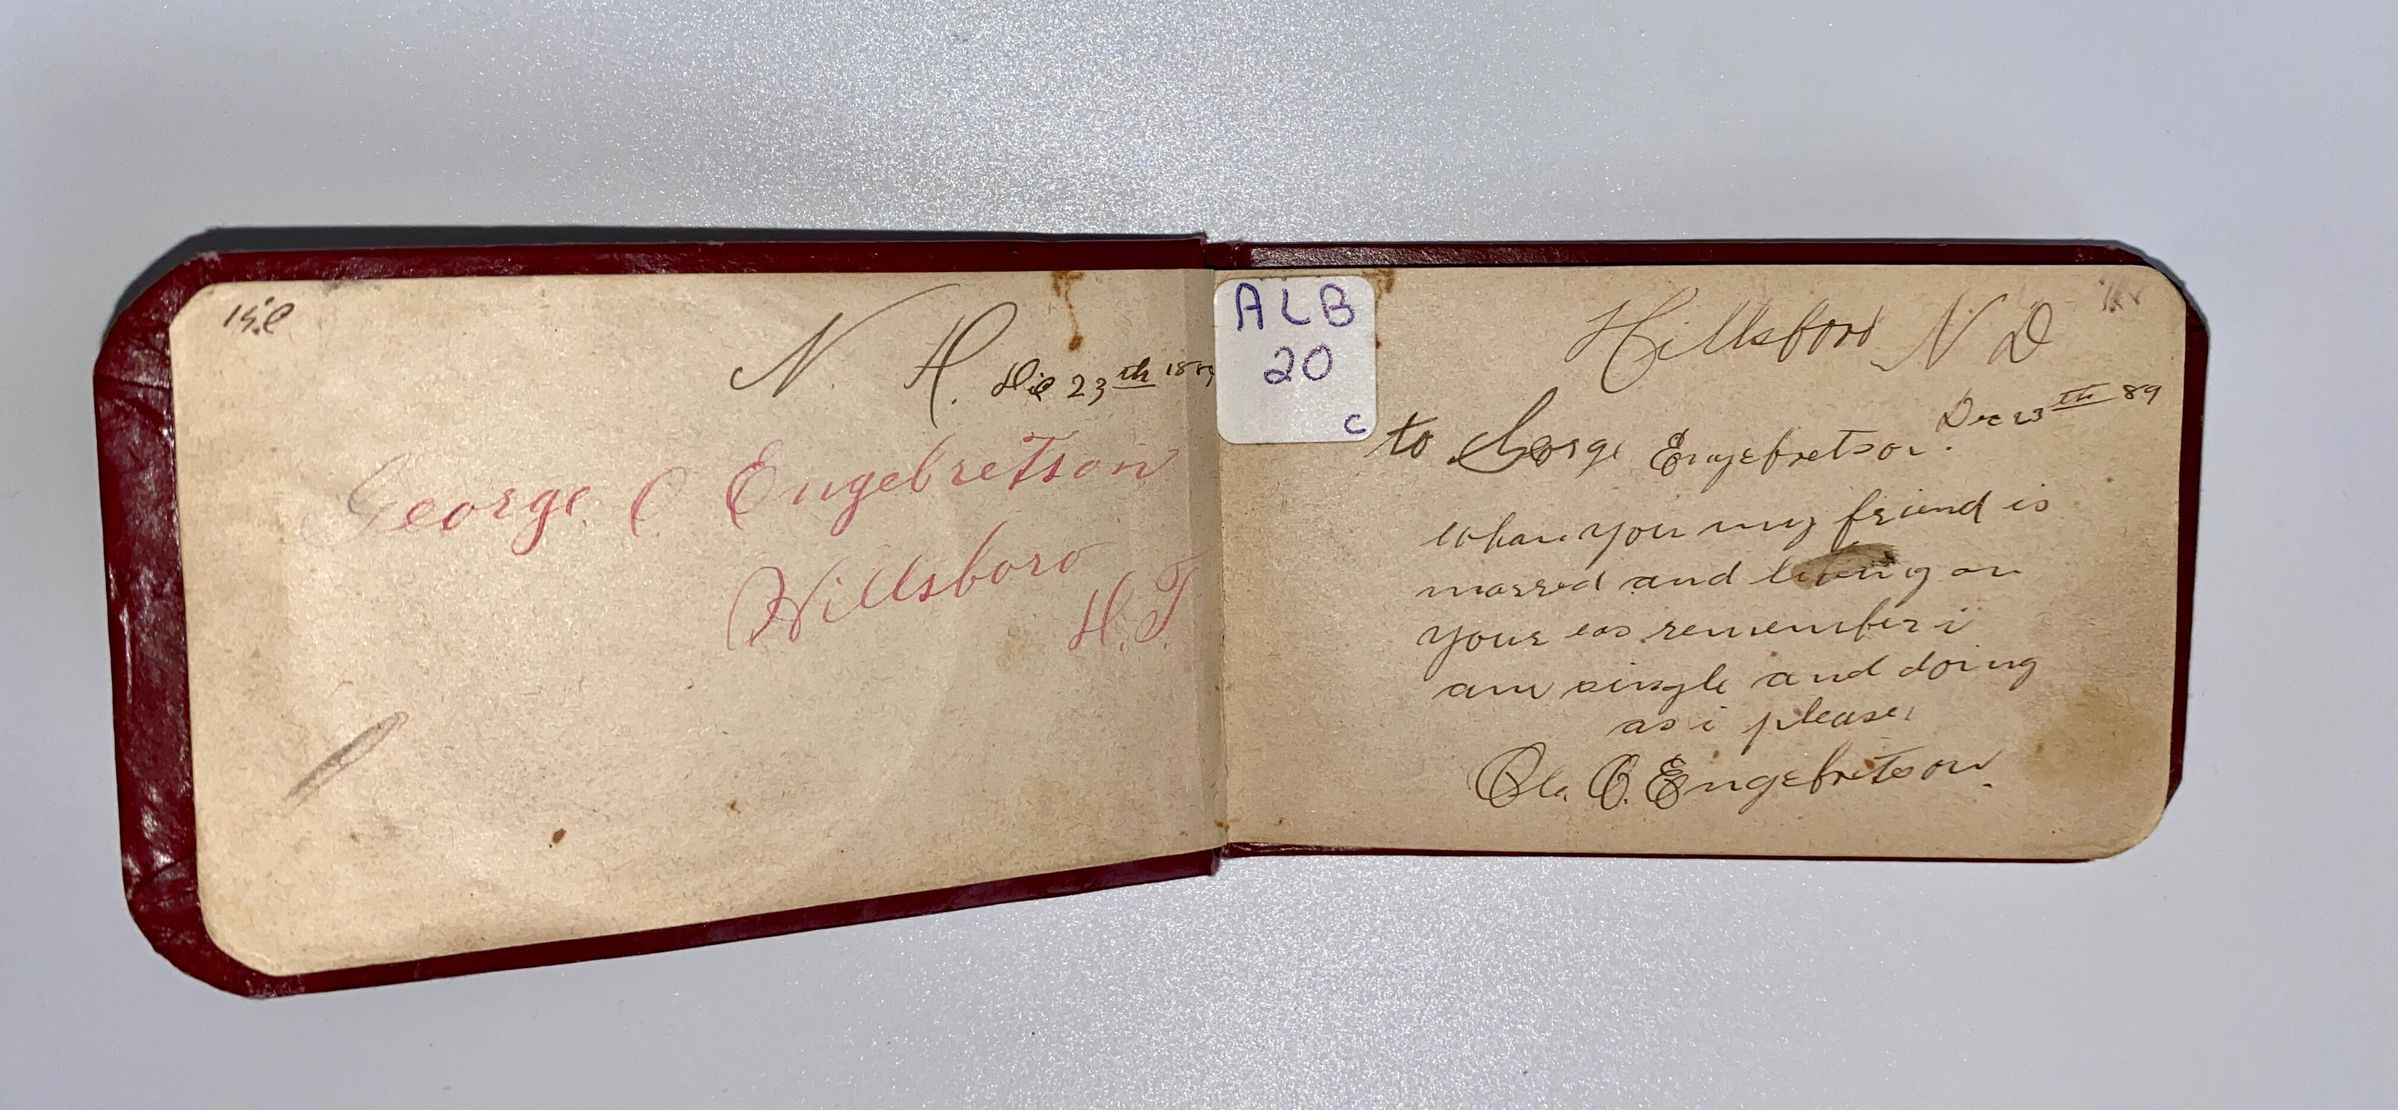 N. H. Dic 23th 1889
George O Engebretson
Hillsboro
D.T.
ALB
20
C
Hillsboro N D
Dec 23th 89
to George Engebretson.
whan you my friend is
marred and living on
your eas remember i
am single and doing
as i please,
Ole. O. Engebretson.